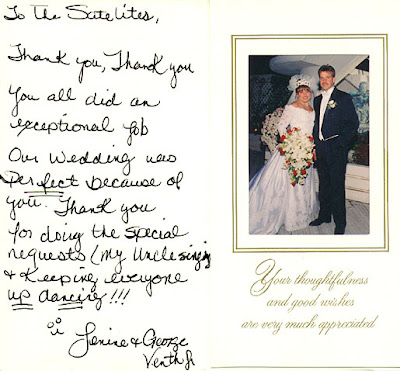 To The Satelites,
Thank you, Thank you
You all did an
exceptional job
Our wedding was
perfect because of
you. Thank you
for doing the special
requests (my Uncle singing
& keeping everyone
up dancing!!!
& George
Your thoughtfulness
and good wishes
are very much appreciated